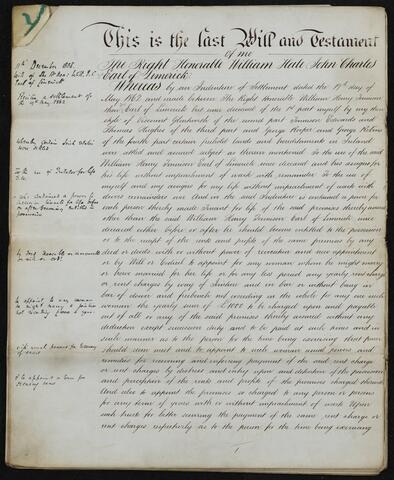 This is the last Will and Testament
of me
The Right Honorable William Hale John Charles
Earl of Limerick
Whereas by an Indenture of Settlement dated the 19th day of
May 1862 and made between The Right Honorable William Henry Tennison
Earl of Limerick but since deceased of the 1st part myself by my then
style of Viscount Glentworth of the second part Tennison Edwards and
Thomas Hughes of the third part and George Hooper and George
of the fourth part certain freehold lands and hereditaments in Ireland
were settled and assured subject as therein mentioned To the use of the said
William Henry Tennison Earl of Limerick since deceased and his assigns for
his life without impeachment of waste with remainder To the use of
myself and my assigns for my life without impeachment of waste with
divers remainders over And in the said Indenture is contained a power for
each person thereby made tenant for life of the said premises thereby assured
other than the said William Henry Tennison Earl of Limerick since
deceased either before or after he should become entitled to the possession
or to the receipt of the rents and profits of the same premises by any
deed or deeds with or without power of revocation and new appointment
or by Will or Codicil to appoint for any woman whom he might marry
or have married for her life or for any less period any yearly rent charge
or rent charges by way of Jointure and in bar or without being in
bar of dower and freebench not exceeding in the whole for any one such
woman the yearly sum of £1000 to be charged upon and payable
out of all or any of the said premises thereby assured without any
deduction except succession duty and to be paid at such times and in
such manner as to the person for the time being exercising that power
should seem meet and to appoint to such woman usual powers and
remedies for recovering and enforcing payment of the said rent charge
or rent charges by distress and entry upon and detention of the possession
and perception of the rents and profits of the premises charged therewith
And also to appoint the premises so charged to any person or persons
for any term of years with or without impeachment of waste Upon
such trusts for better securing the payment of the same rent charge or
rent charges respectively as to the person for the time being exercising
11th December 1888
Will of the Rt Honble
Earl of Limerick
Reciting a settlement of
the 19th May 1862
Whereby certain lands
were settled
To the use of Testator for life
To appoint to any woman
he might marry a jointure
not exceeding £1000 a year
with usual powers for recovery
of same
& to appoint a term for
securing same
1